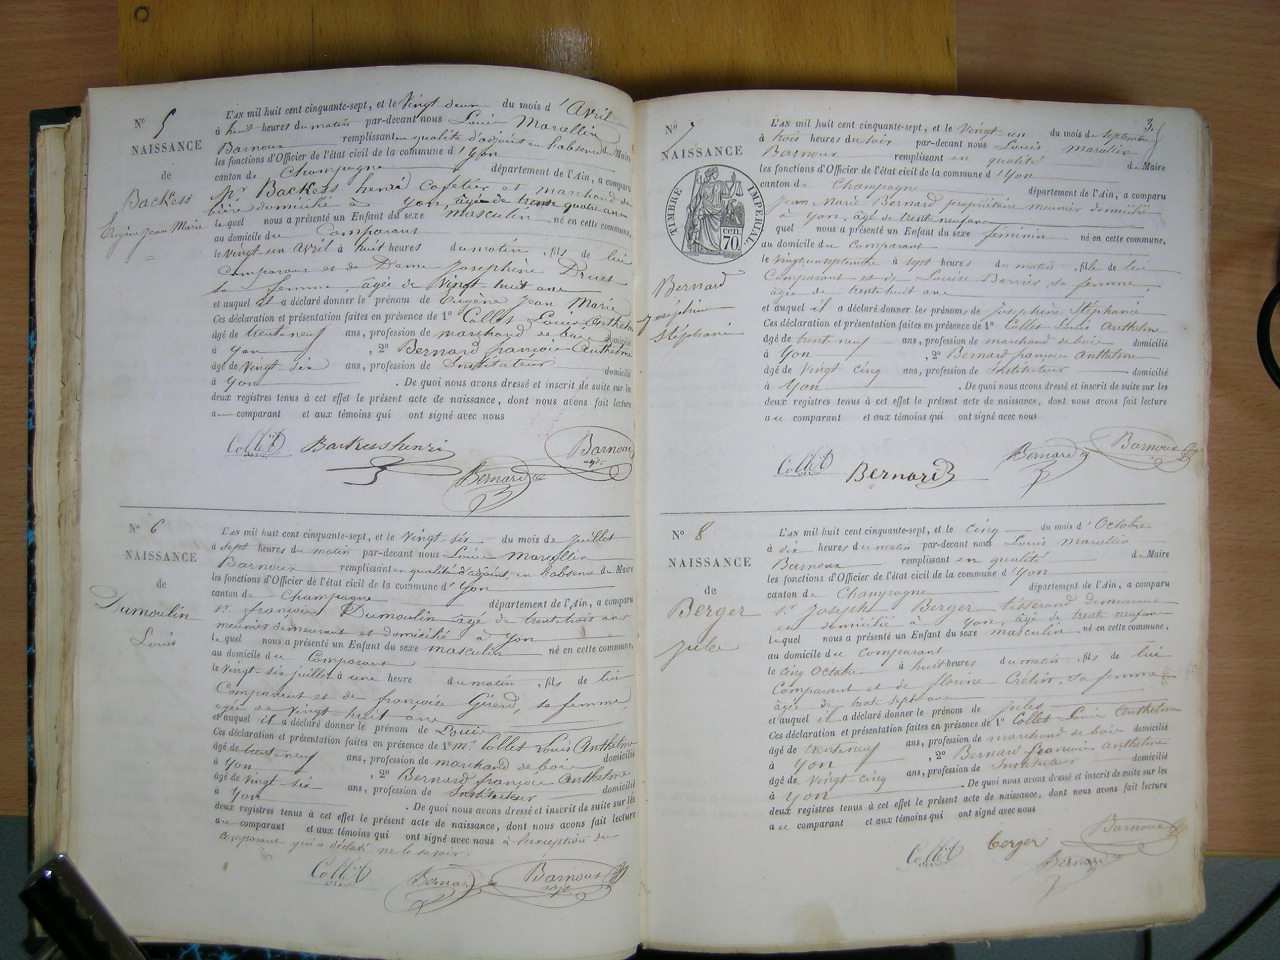 Nº 5
NAISSANCE
de
Backess
Eugène Jean Marie
L'AN mil huit cent cinquante-sept, et le vingt deux du mois d'Avril
à huit heures du matin par-devant nous Louis Marcellin
Barnoux remplissant en qualité d'adjoint en l'absence du Maire
les fonctions d'Officier de l'état civil de la commune d'Yon
canton de Champagne département de l'Ain, a comparu
Mr. Backess henri Cafetier et marchand de
bière domicilié à Yon, âgé de trente quatre ans
lequel nous a présenté un Enfant du sexe masculin né en cette commune,
au domicile du Comparant
le vingt un avril à huit heures du matin, fils de lui
Comparant et de Dame Joséphine
sa femme, âgée de vingt huit ans
et auquel il a déclaré donner le prénom de Eugène Jean Marie
Ces déclaration et présentation faites en présence de 1º Collet Louis Anthelme
âgé de trente neuf ans, profession de marchand de bois domicilié
à Yon , 2º Bernard françois Anthelme
âgé de vingt six ans, profession de Instituteur domicilié
à Yon . De quoi nous avons dressé et inscrit de suite sur les
deux registres tenus à cet effet le présent acte de naissance, dont nous avons fait lecture
au comparant et aux témoins qui ont signé avec nous
Collet Backess henri Barnoux
adj.
Bernard
Nº 6
NAISSANCE
de
Dumoulin
Louis
L'AN mil huit cent cinquante-sept, et le vingt six du mois de juillet
à sept heures du matin par-devant nous Louis Marcellin
Barnoux remplissant en qualité d'adjoint, en l'absence du Maire
les fonctions d'Officier de l'état civil de la commune d'Yon
canton de Champagne département de l'Ain, a comparu
Sr. françois Dumoulin âgé de trente trois ans
meunier demeurant et domicilié à Yon
lequel nous a présenté un Enfant du sexe masculin né en cette commune,
au domicile du Comparant
le vingt six juillet à une heure du matin, fils de lui
Comparant et de françoise Girerd, sa femme,
agée de vingt huit ans
et auquel il a déclaré donner le prénom de Louis
Ces déclaration et présentation faites en présence de 1º Mr. Collet Louis Anthelme
âgé de trente neuf ans, profession de marchand de bois domicilié
à Yon , 2º Bernard françois Anthelme
âgé de vingt six ans, profession de Instituteur domicilié
à Yon . De quoi nous avons dressé et inscrit de suite sur les
deux registres tenus à cet effet le présent acte de naissance, dont nous avons fait lecture
au comparant et aux témoins qui ont signé avec nous à l'exception du
comparant qui a déclaré ne le savoir.
Collet Bernard Barnoux
adj.
3.
Nº 7
NAISSANCE
TIMBRE IMPÉRIAL
70 cen.
Bernard
Joséphine
Stéphanie
L'AN mil huit cent cinquante-sept, et le vingt un du mois de septembre
à trois heures du soir par-devant nous Louis Marcellin
Barnoux remplissant en qualité de Maire
les fonctions d'Officier de l'état civil de la commune d'Yon
canton de Champagne département de l'Ain, a comparu
Jean Marie Bernard propriétaire meunier domicilié
à Yon, âgé de trente neuf ans
lequel nous a présenté un Enfant du sexe féminin né en cette commune,
au domicile du Comparant
le vingt un septembre à sept heures du matin fille de lui
Comparant et de Louise sa femme,
âgée de trente huit ans
et auquel il a déclaré donner les prénoms de Joséphine Stéphanie
Ces déclaration et présentation faites en présence de 1º Collet Louis Anthelme
âgé de trente neuf ans, profession de marchand de bois domicilié
à Yon , 2º Bernard françois Anthelme
âgé de vingt cinq ans, profession de Instituteur domicilié
à Yon . De quoi nous avons dressé et inscrit de suite sur les
deux registres tenus à cet effet le présent acte de naissance, dont nous avons fait lecture
au comparant et aux témoins qui ont signé avec nous
Collet Bernard Bernard Barnoux
Nº 8
NAISSANCE
de
Berger
Jules
L'AN mil huit cent cinquante-sept, et le cinq du mois d'Octobre
à six heures du matin par-devant nous Louis Marcellin
Barnoux remplissant en qualité de Maire
les fonctions d'Officier de l'état civil de la commune d'Yon
canton de Champagne département de l'Ain, a comparu
Sr. Joseph Berger tisserand demeurant
et domicilié à Yon, âgé de trente neuf ans
lequel nous a présenté un Enfant du sexe masculin né en cette commune,
au domicile du Comparant
le cinq Octobre à huit heures du matin, fils de lui
Comparant et de florine Crétin, sa femme
âgée de trente sept ans
et auquel il a déclaré donner le prénom de Jules
Ces déclaration et présentation faites en présence de 1º Collet Louis Anthelme
âgé de trente neuf ans, profession de marchand de bois domicilié
à Yon , 2º Bernard françois Anthelme
âgé de vingt cinq ans, profession de Instituteur domicilié
à Yon . De quoi nous avons dressé et inscrit de suite sur les
deux registres tenus à cet effet le présent acte de naissance, dont nous avons fait lecture
au comparant et aux témoins qui ont signé avec nous
Collet berger Bernard Barnoux